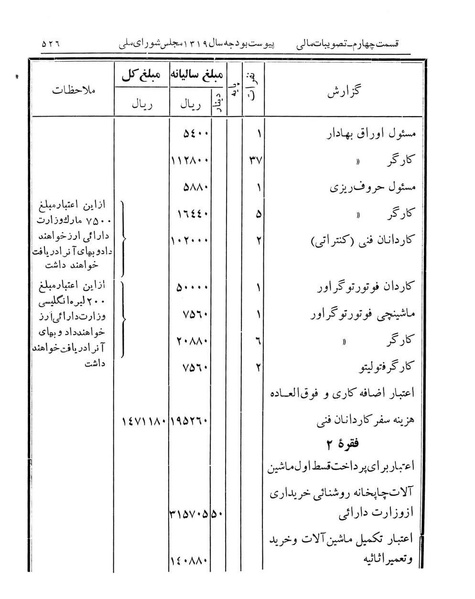 قسمت چهارم ـ تصویبات مالی پیوست بودجه سال ۱۳۱۹ مجلس شورای ملی ۵۲۶
گزارش نفرات پایه مبلغ سالیانه مبلغ کل ملاحظات
دینار ریال ریال
مسئول اوراق بهادار ۱ ۵٤۰۰
کارگر » ۳۷ ۱۱۲۸۰۰
مسئول حروف‌ریزی ۱ ۵۸۸۰
کارگر » ۵ ۱٦٤٤۰
کاردانان فنی (کنتراتی) ۲ ۱۰۲۰۰۰
از این اعتبار مبلغ
۷۵۰۰ مارک وزارت
دارائی ارز خواهند
داد و بهای آنرا دریافت
خواهند داشت
کاردان فوتورتوگراور ۱ ۵۰۰۰۰
ماشینچی فوتورتوگراور ۱ ۷۵٦۰
کارگر » ٦ ۲۰۸۸۰
کارگر فتولیتو ۲ ۷۵٦۰
از این اعتبار مبلغ
۲۰۰ لیره انگلیسی
وزارت دارائی ارز
خواهند داد و بهای
آنرا دریافت خواهند
داشت
اعتبار اضافه کاری و فوق العاده
هزینه سفر کاردانان فنی ۱۹۵۲٦۰ ۱٤۷۱۱۸۰
فقرهٔ ۲
اعتبار برای پرداخت قسط اول ماشین
آلات چاپخانه روشنائی خریداری
از وزارت دارائی ۵۰ ۳۱۵۷۰۵
اعتبار تکمیل ماشین آلات و خرید
و تعمیر اثاثیه ۱٤۰۸۸۰